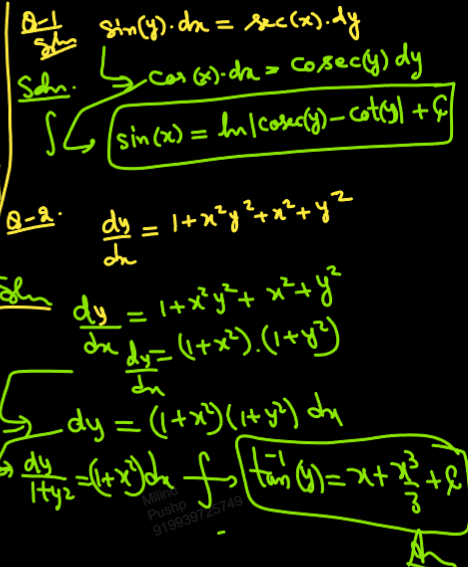 Q-1 sin(y).dx = sec(x).dy
Soln
Soln. cos(x).dx = cosec(y) dy
∫ sin(x) = ln|cosec(y) - cot(y)| + C
Q-2. dy/dx = 1+x²y²+x²+y²
Soln dy/dx = 1+x²y²+x²+y²
dy/dx = (1+x²).(1+y²)
dy = (1+x²)(1+y²) dx
dy/1+y² = (1+x²)dx ∫ tan⁻¹(y) = x + x³/3 + C
Milind
Pushp
919939725749
Ans